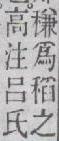 稴爲稻之
高注呂氏